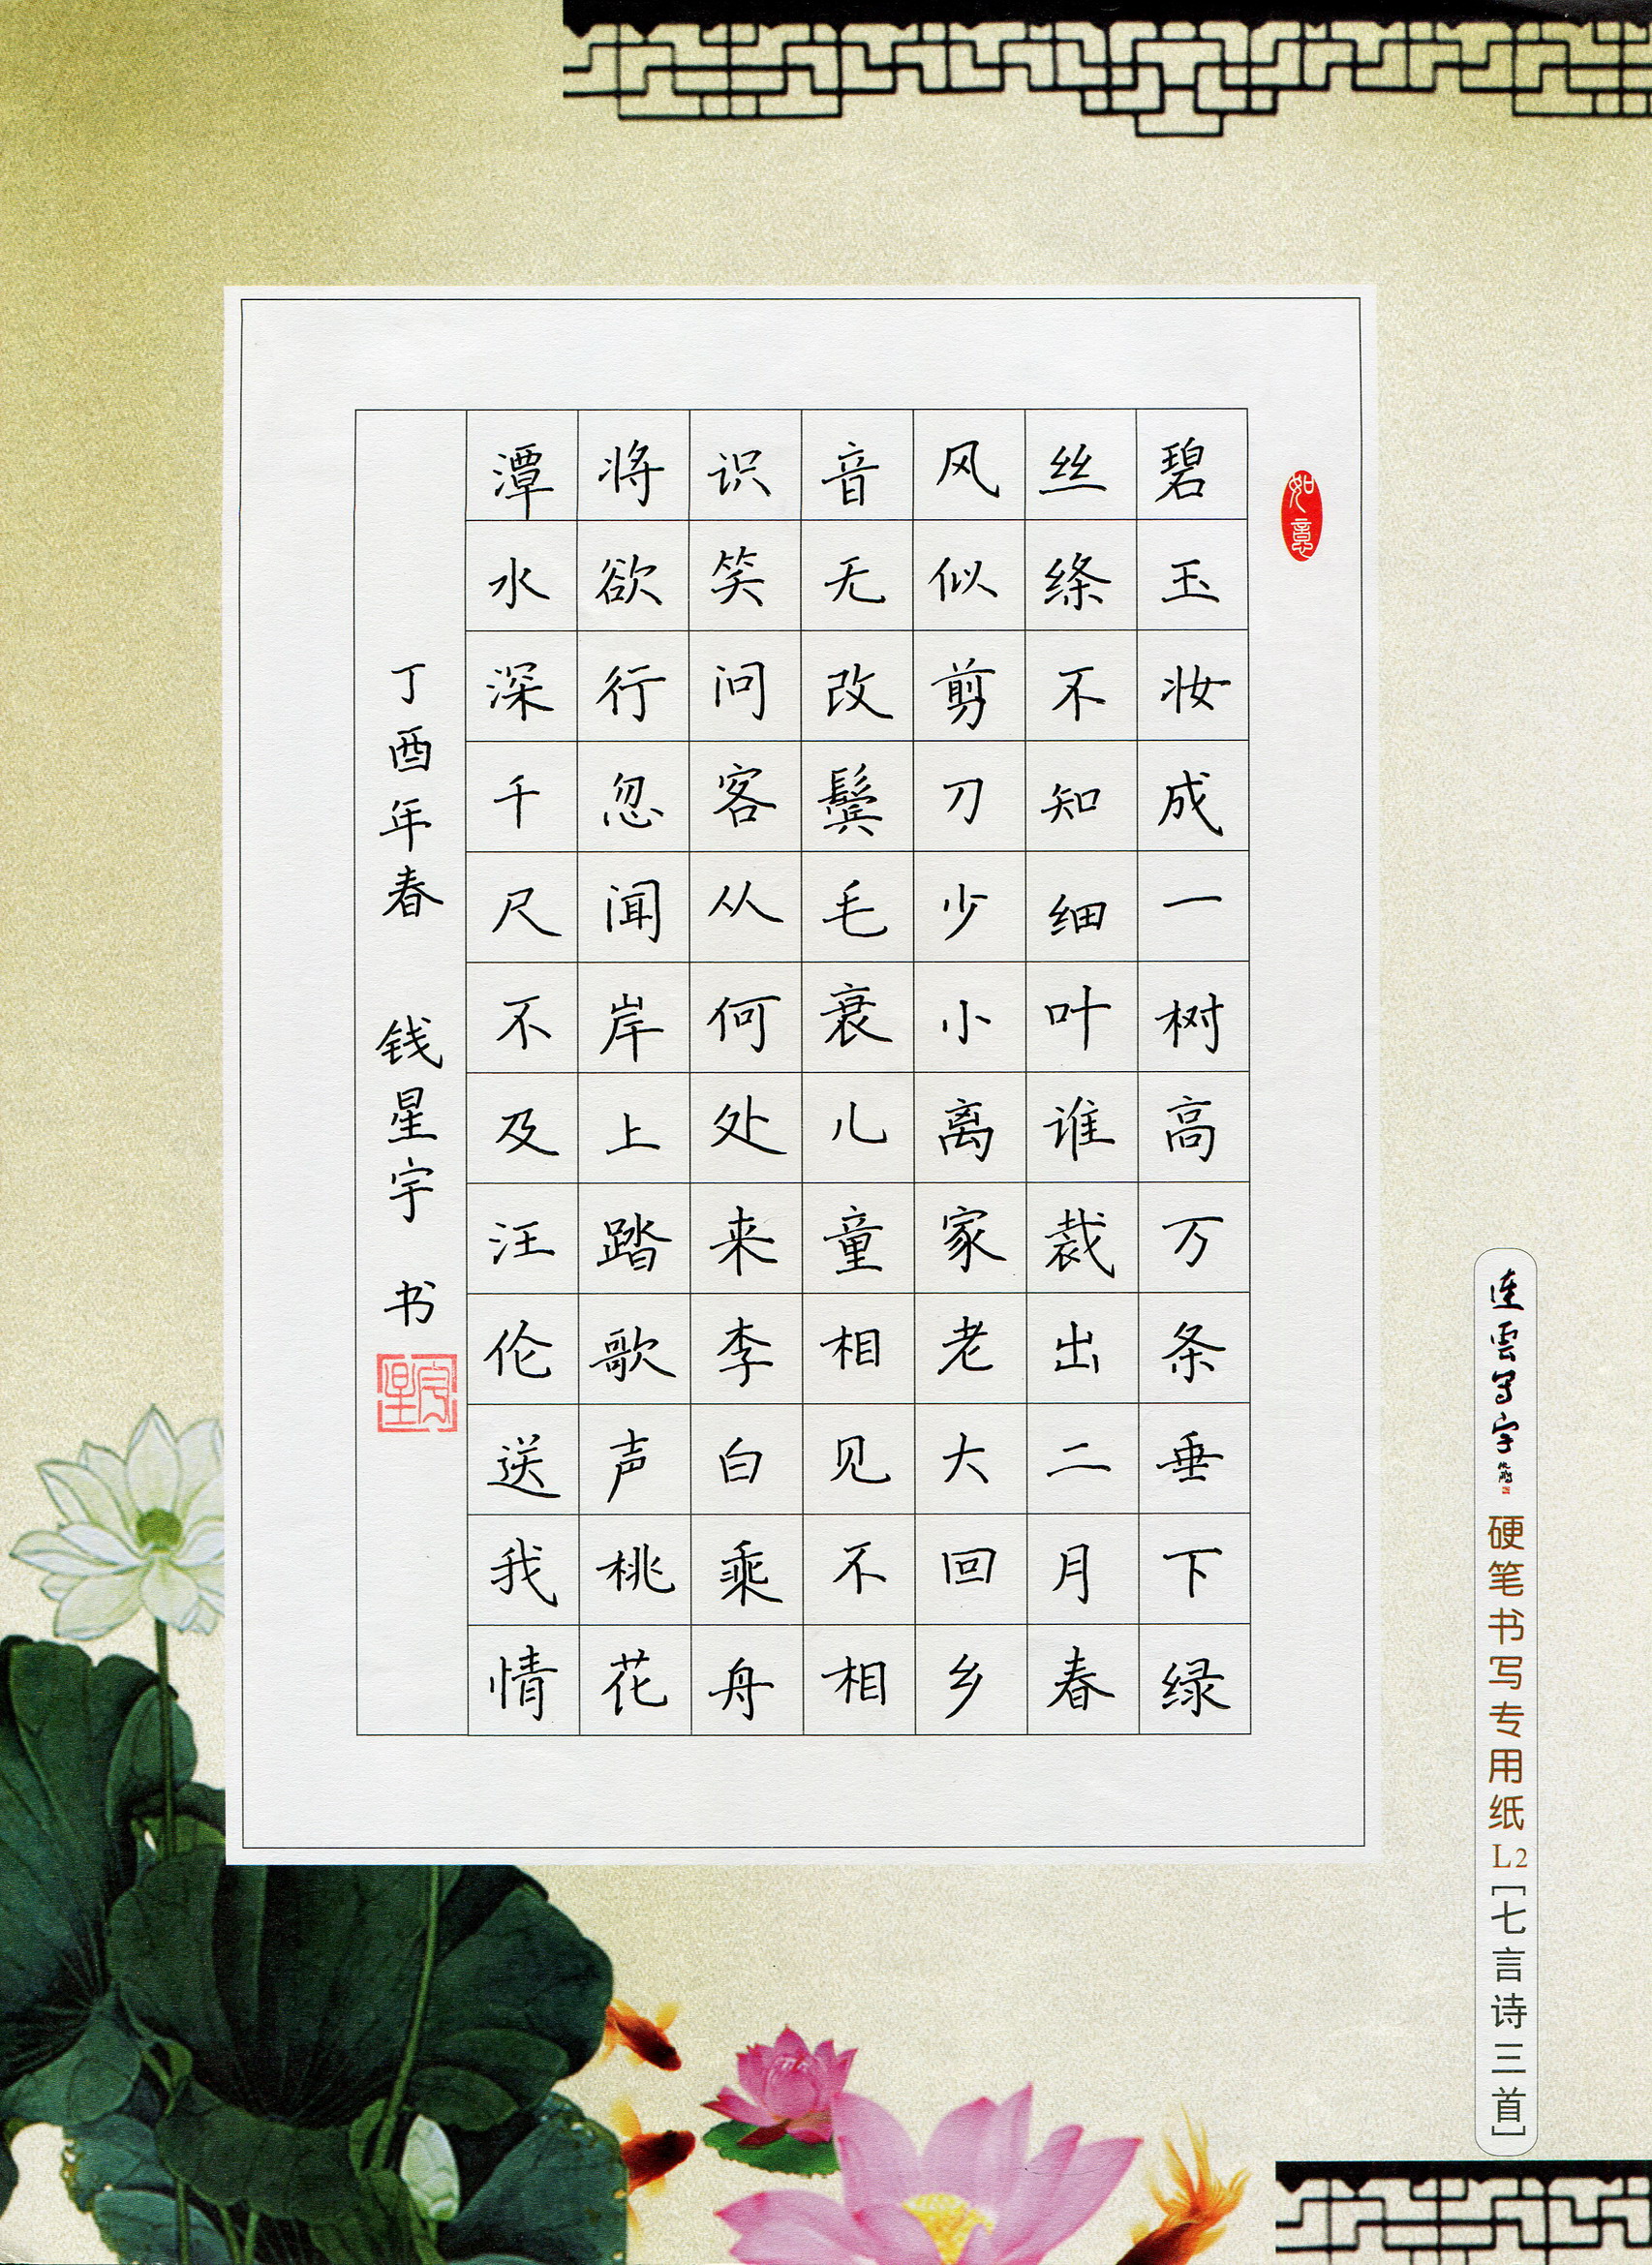 如意
碧玉妆成一树高万条垂下绿
丝绦不知细叶谁裁出二月春
风似剪刀少小离家老大回乡
音无改鬓毛衰儿童相见不相
识笑问客从何处来李白乘舟
将欲行忽闻岸上踏歌声桃花
潭水深千尺不及汪伦送我情
丁酉年春 钱星宇 书
连雲写字
硬笔书写专用纸L2[七言诗三首]